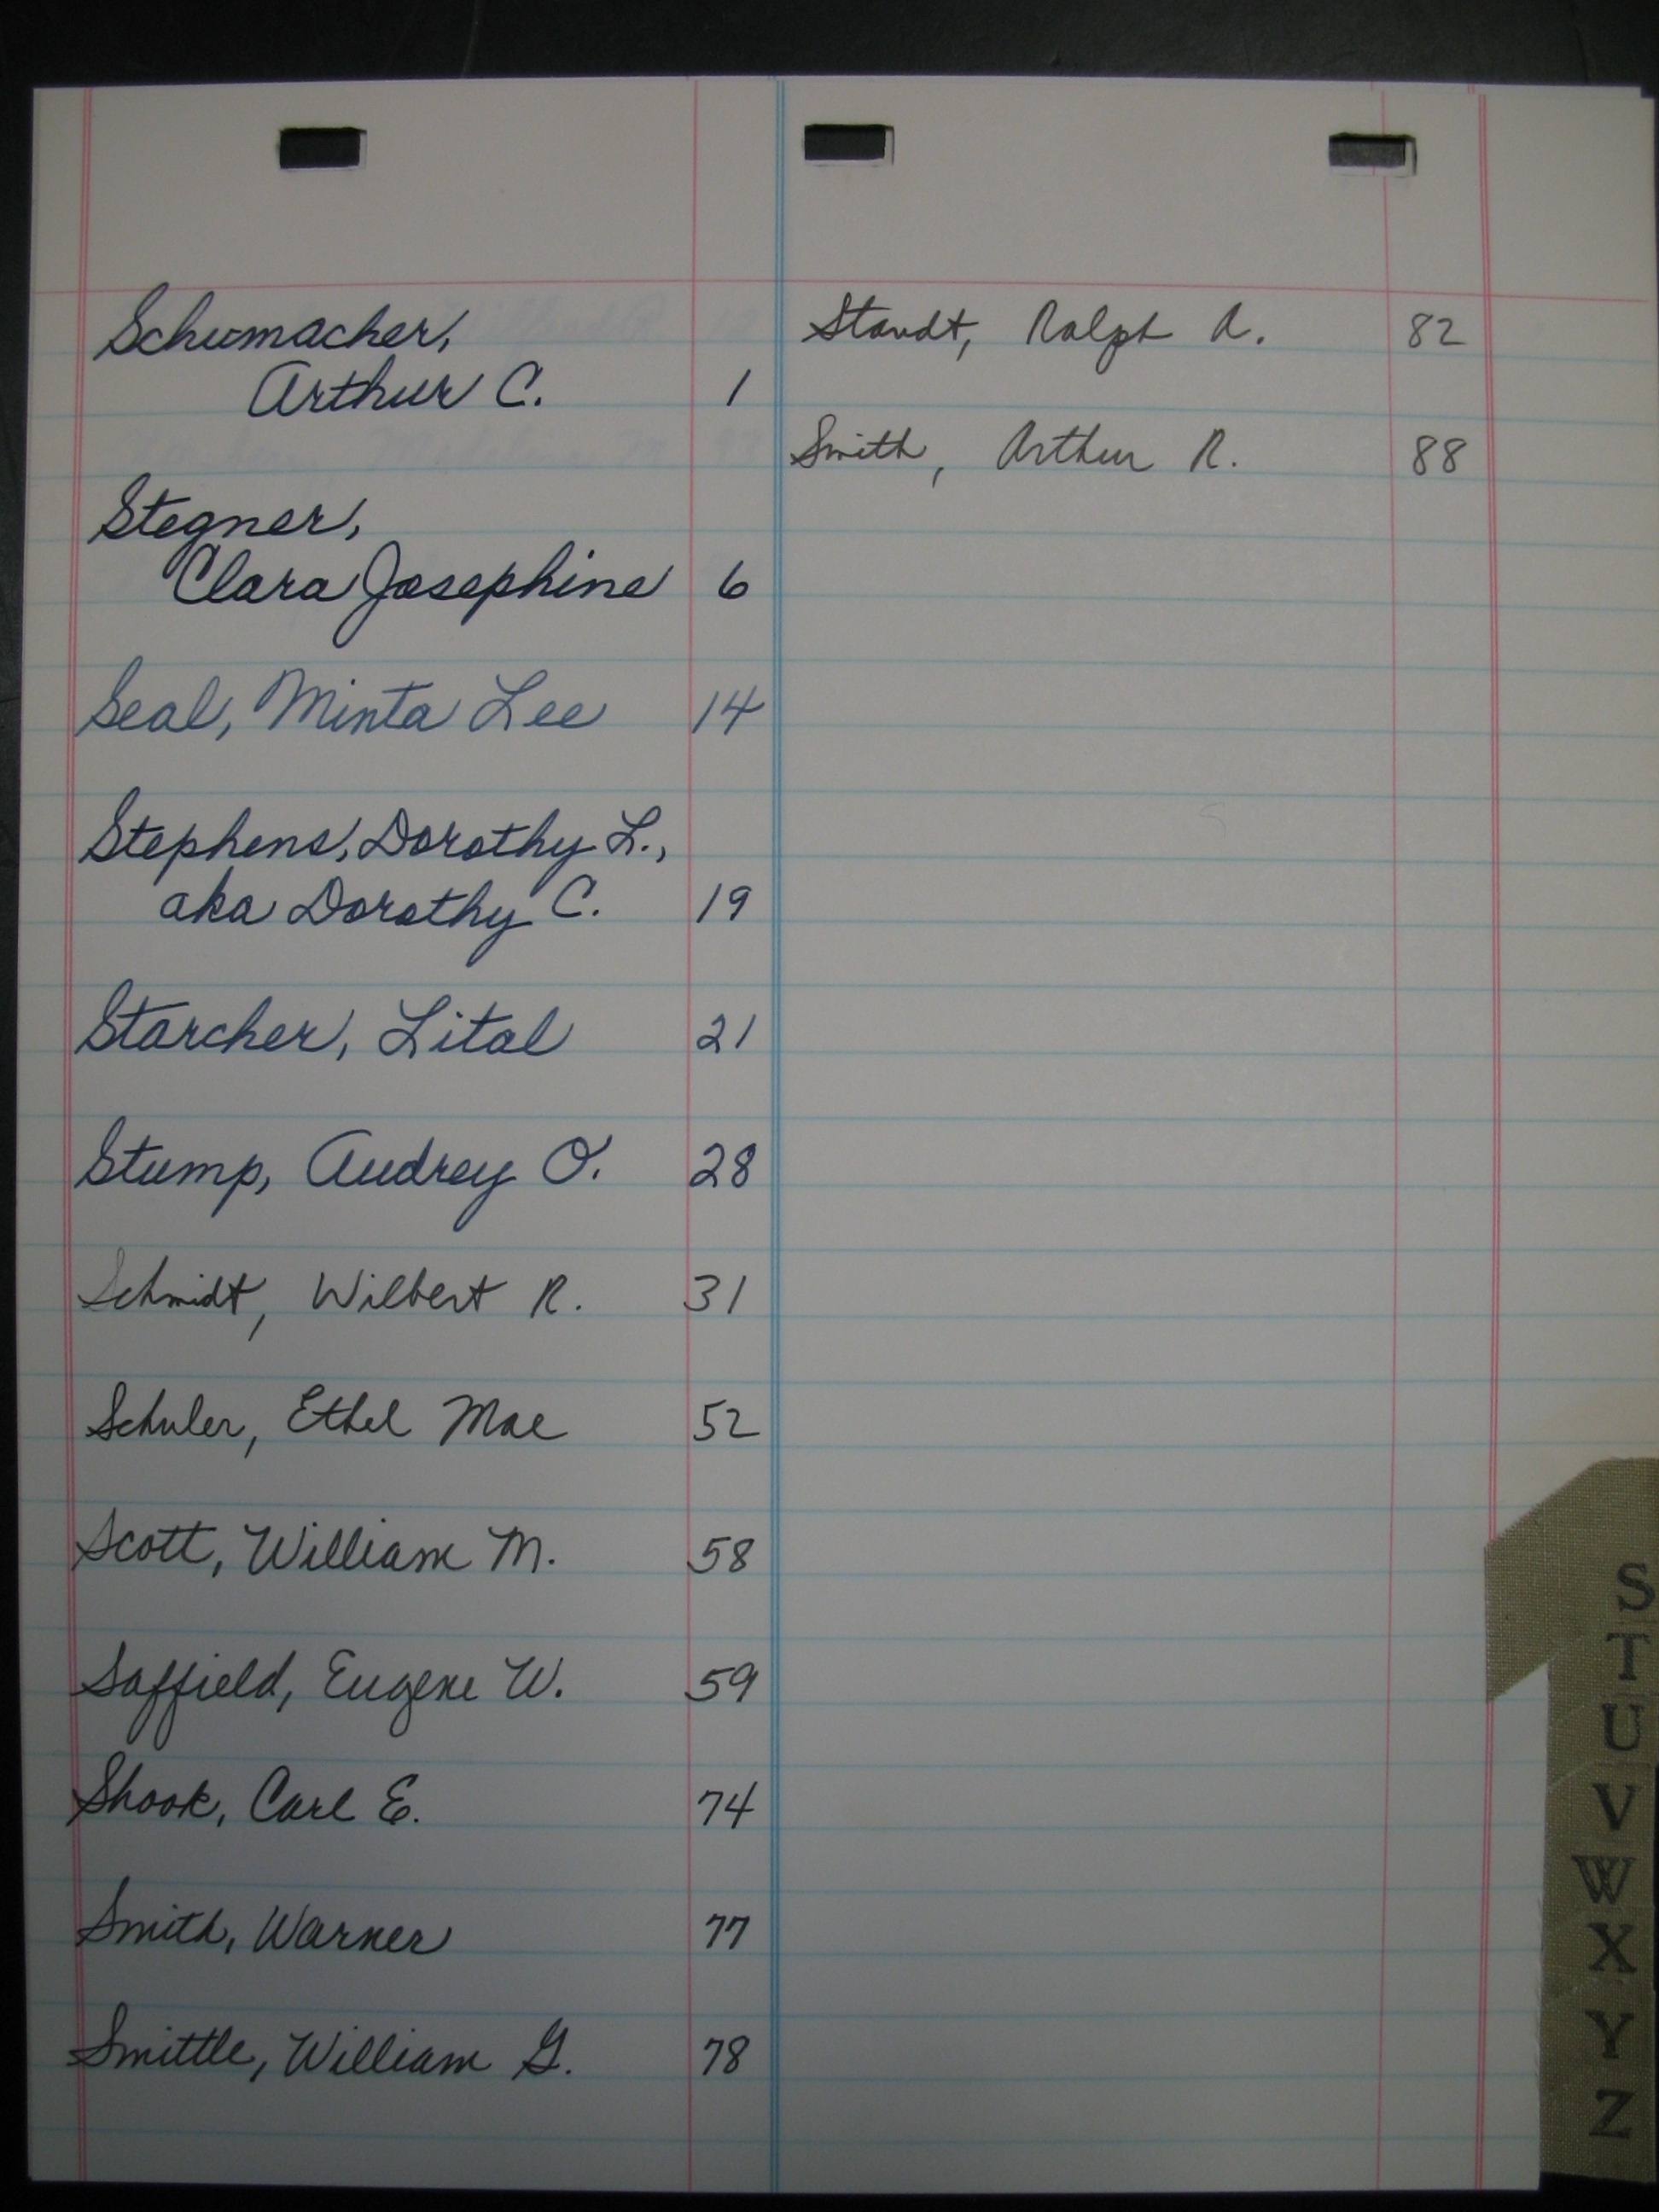 Schumacher,
Arthur C. 1
Stegner,
Clara Josephine 6
Seal, Minta Lee 14
Stephens, Dorothy L.,
aka Dorothy C. 19
Starcher, Lital 21
Stump, Audrey O. 28
Schmidt, Wilbert R. 31
Schuler, Ethel Mae 52
Scott, William M. 58
Saffield, Eugene W. 59
Shook, Carl E. 74
Smith, Warner 77
Smittle, William G. 78
Staudt, Ralph A. 82
Smith, Arthur R. 88
S
T
U
V
W
X
Y
Z